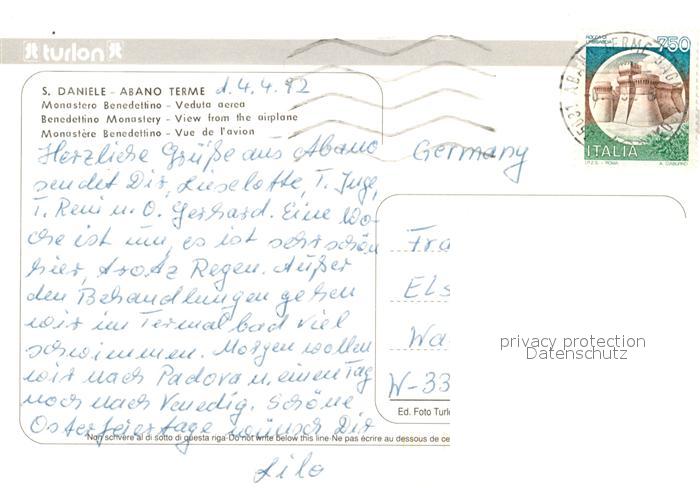 turlon
S. DANIELE - ABANO TERME d. 4.4.92
Monastero Benedettino - Veduta aerea
Benedettino Monastery - View from the airplane
Monastère Benedettino - Vue de l'avion
Herzliche Grüße aus Abano
sendet Dir, Lieselotte, T. Inge,
T. Reni u. O. Gerhard. Eine Wo-
che ist um, es ist sehr schön
hier, trotz Regen. Außer
den Behandlungen gehen
wir im Termalbad viel
schwimmen. Morgen wollen
wir nach Padova u. einen Tag
noch nach Venedig. Schöne
Osterfeiertage wünscht Dir
Lilo
Non scrivere al di sotto di questa riga-Do not write below this line-Ne pas écrire au dessous de ce
Germany
Fra
Els
Wa
W-33
Ed. Foto Turlo
ROCCA DI
URBISAGLIA
750
ITALIA
I.P.Z.S. - ROMA
ABANO TERME
privacy protection
Datenschutz